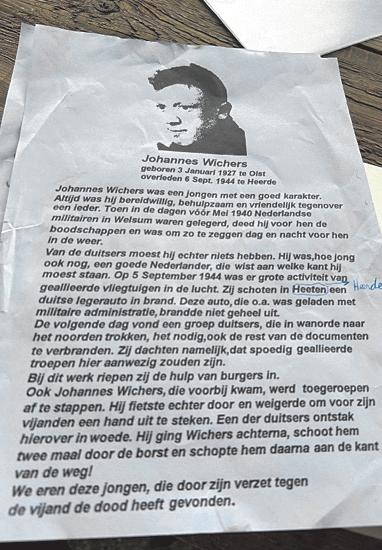 Johannes Wichers
geboren 3 Januari 1927 te Olst
overleden 6 Sept. 1944 te Heerde
Johannes Wichers was een jongen met een goed karakter.
Altijd was hij bereidwillig, behulpzaam en vriendelijk tegenover
een ieder. Toen in de dagen vóór Mei 1940 Nederlandse
militairen in Welsum waren gelegerd, deed hij voor hen de
boodschappen en was om zo te zeggen dag en nacht voor hen
in de weer.
Van de duitsers moest hij echter niets hebben. Hij was,hoe jong
ook nog, een goede Nederlander, die wist aan welke kant hij
moest staan. Op 5 September 1944 was er grote activiteit van
geallieerde vliegtuigen in de lucht. Zij schoten in Heeten een Heerde
duitse legerauto in brand. Deze auto, die o.a. was geladen met
militaire administratie, brandde niet geheel uit.
De volgende dag vond een groep duitsers, die in wanorde naar
het noorden trokken, het nodig,ook de rest van de documenten
te verbranden. Zij dachten namelijk,dat spoedig geallieerde
troepen hier aanwezig zouden zijn.
Bij dit werk riepen zij de hulp van burgers in.
Ook Johannes Wichers, die voorbij kwam, werd toegeroepen
af te stappen. Hij fietste echter door en weigerde om voor zijn
vijanden een hand uit te steken. Een der duitsers ontstak
hierover in woede. Hij ging Wichers achterna, schoot hem
twee maal door de borst en schopte hem daarna aan de kant
van de weg!
We eren deze jongen, die door zijn verzet tegen
de vijand de dood heeft gevonden.